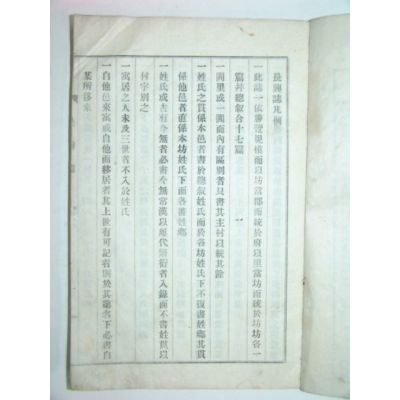 長興誌凡例
一此誌一依勝覽規模而以坊當郡而統於府以里當坊而統於坊坊各一
篇幷總叙合十七篇
一閭里或一閭面內有區別者只書其主村以統其餘
一姓氏之貫係本邑者書於總叙姓氏而於各坊姓氏下不復書姓鄕其貫
係他邑者直係本坊姓氏下而各書姓鄕
一姓氏或古有今無者必書今無常漢以屢代饒衍者入錄而不書姓貫以
付字別之
一寓居之人未及三世者不入於姓氏
一自他邑來寓或自他面移居者其上世有可記者則於其名下必書自
某所移來